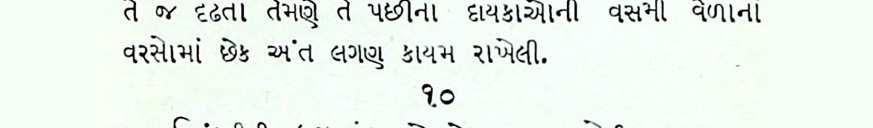 તે જ દૃઢતા તેમણે તે પછીના દાયકાઓની વસમી વેળાનાં
વરસોમાં છેક અંત લગણ કાયમ રાખેલી.
૧૦